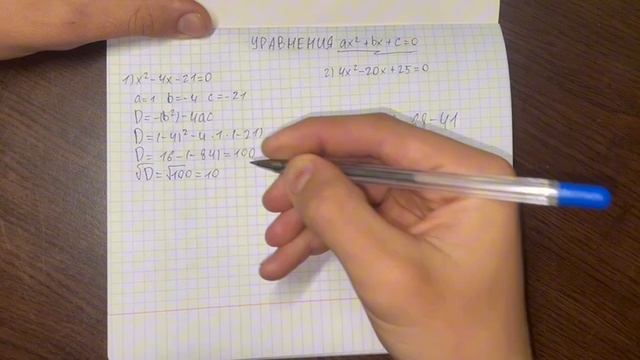 УРАВНЕНИЯ ax²+bx+c=0
1) x²-4x-21=0
a=1 b=-4 c=-21
D=-(b²)-4ac
D=(-4)²-4·1·(-21)
D=16-(-84)=100
√D=√100=10
2) 4x²-20x+25=0
68-41